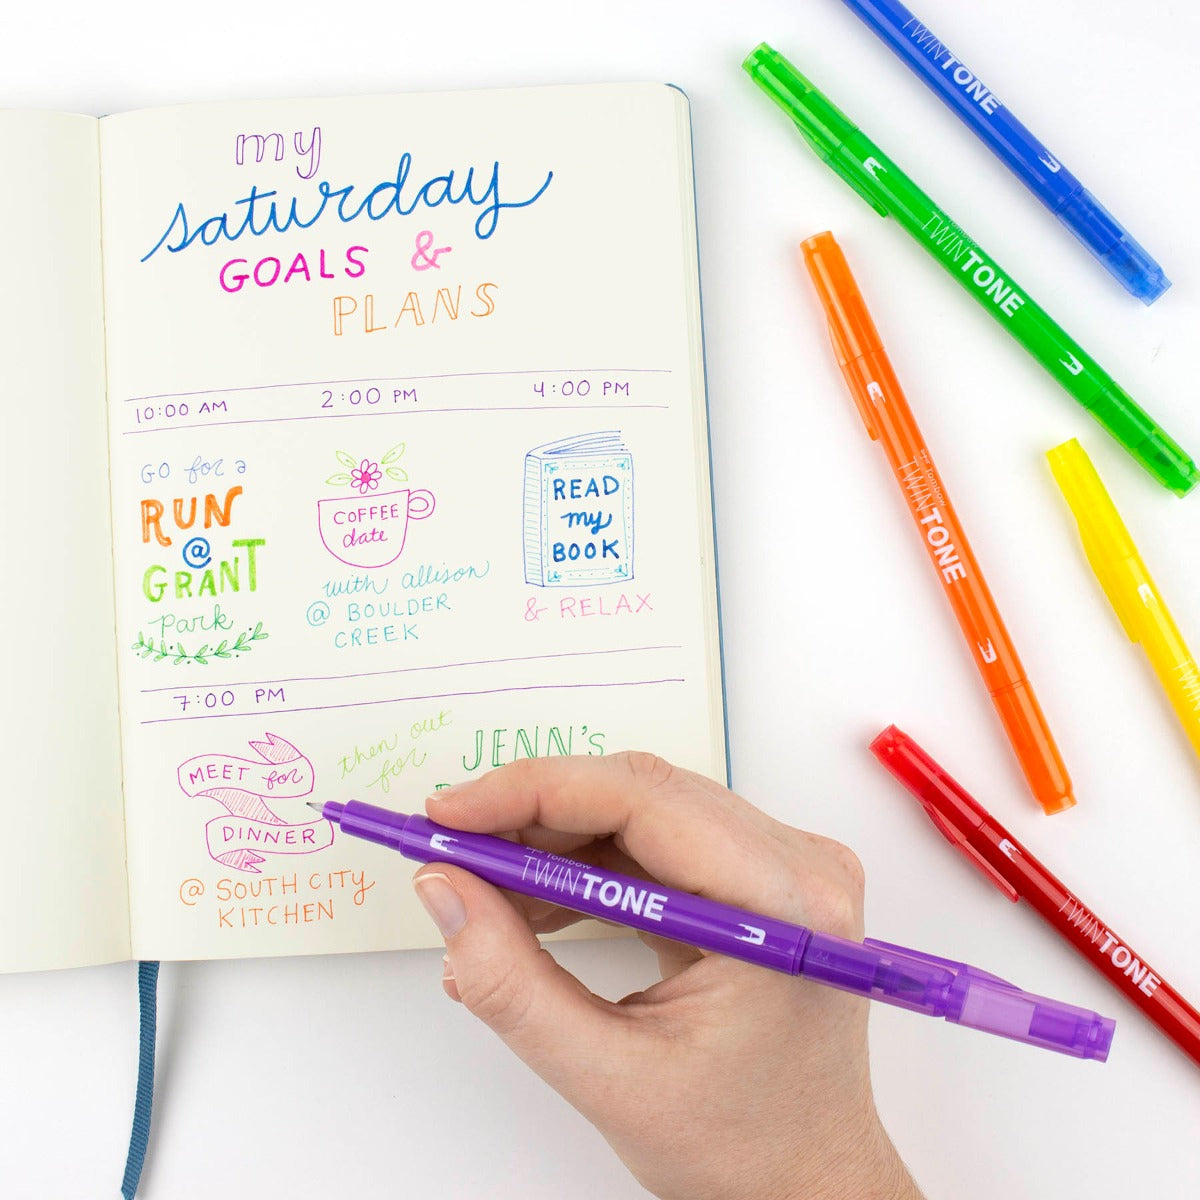 my
saturday
GOALS &
PLANS
10:00 AM
2:00 PM
4:00 PM
GO for a
RUN
@
GRANT
park
COFFEE
date
with allison
@ BOULDER
CREEK
READ
my
BOOK
& RELAX
7:00 PM
MEET for
DINNER
@ SOUTH CITY
KITCHEN
then out
for
JENN'S
TWINTONE
Tombow
TWINTONE
Tombow
TWINTONE
TWIN
TWINTONE
Tombow
TWINTONE